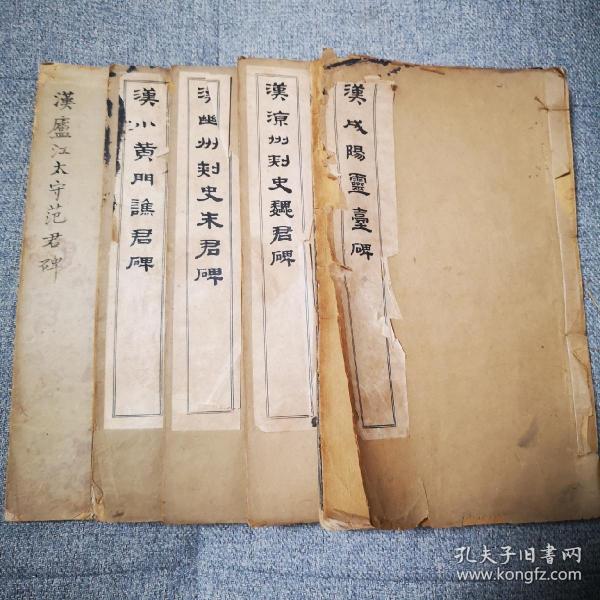 漢成陽靈臺碑
漢涼州刺史魏君碑
漢幽州刺史朱君碑
漢小黃門譙君碑
漢廬江太守范君碑
孔夫子旧书网
www.kongfz.com